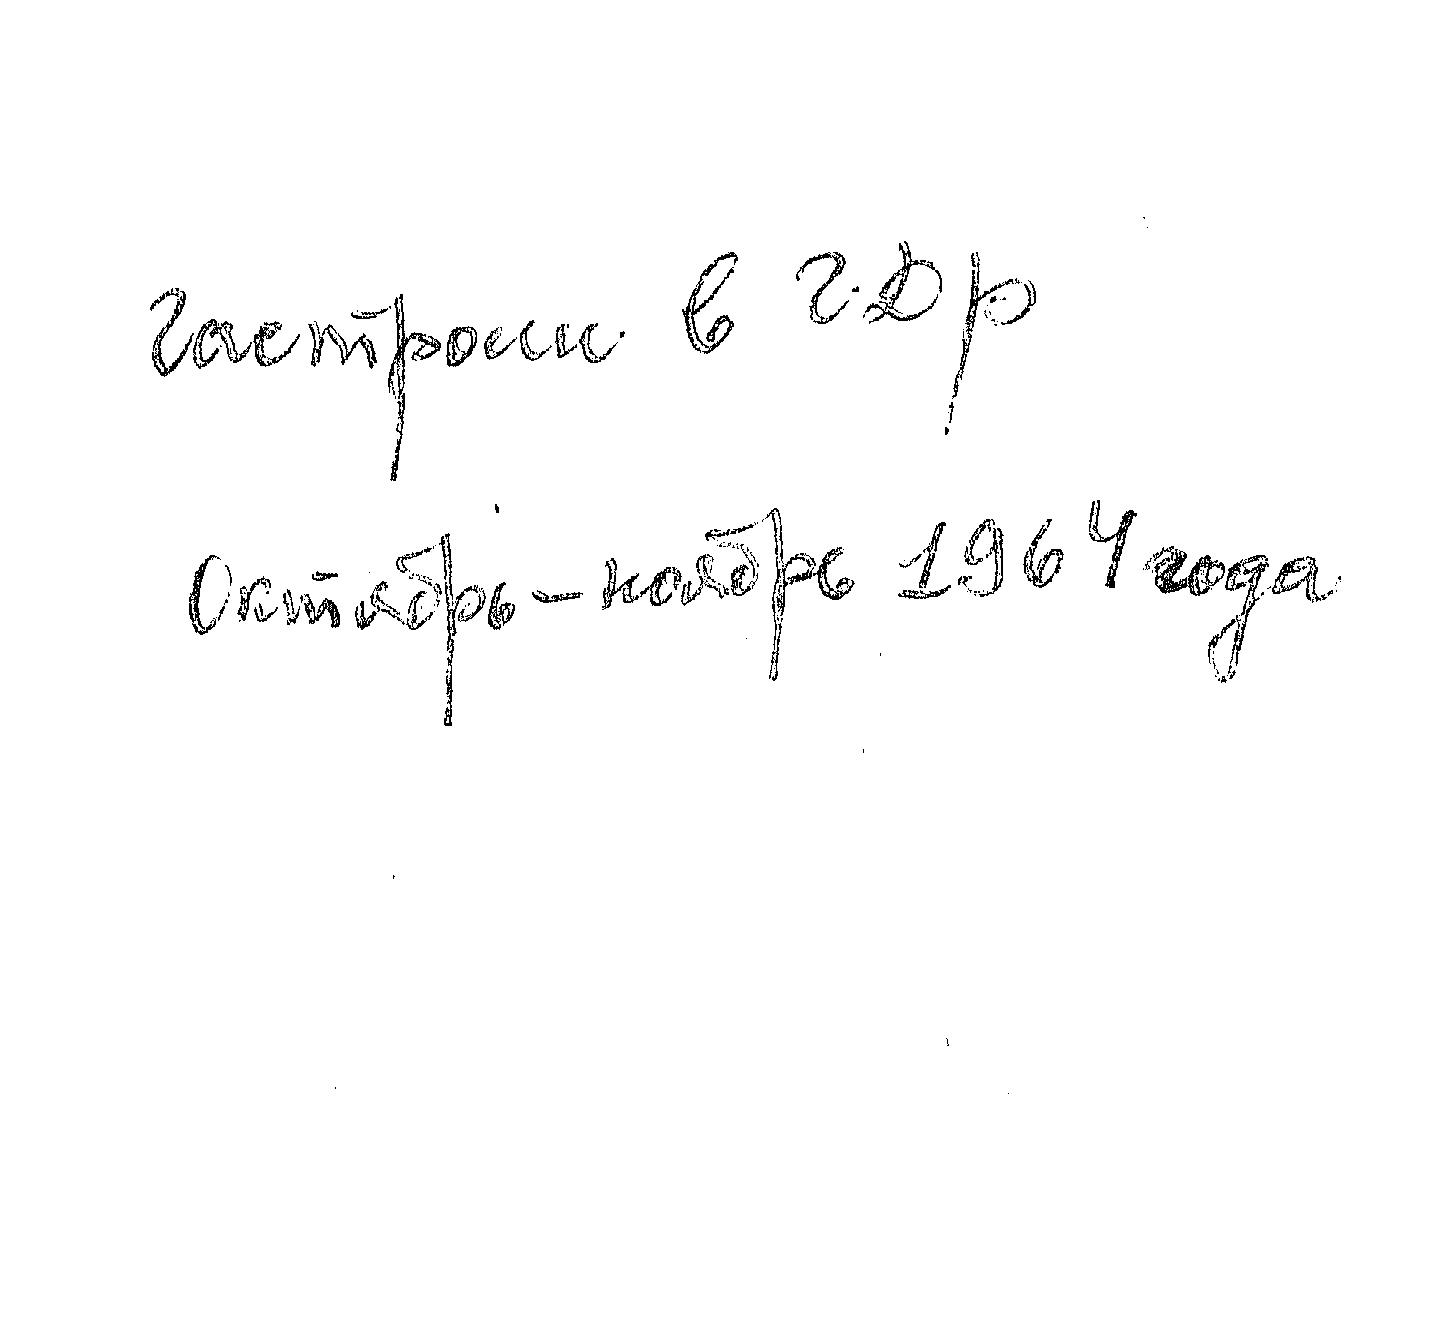 Гастроли в ГДР
Октябрь-ноябрь 1964 года